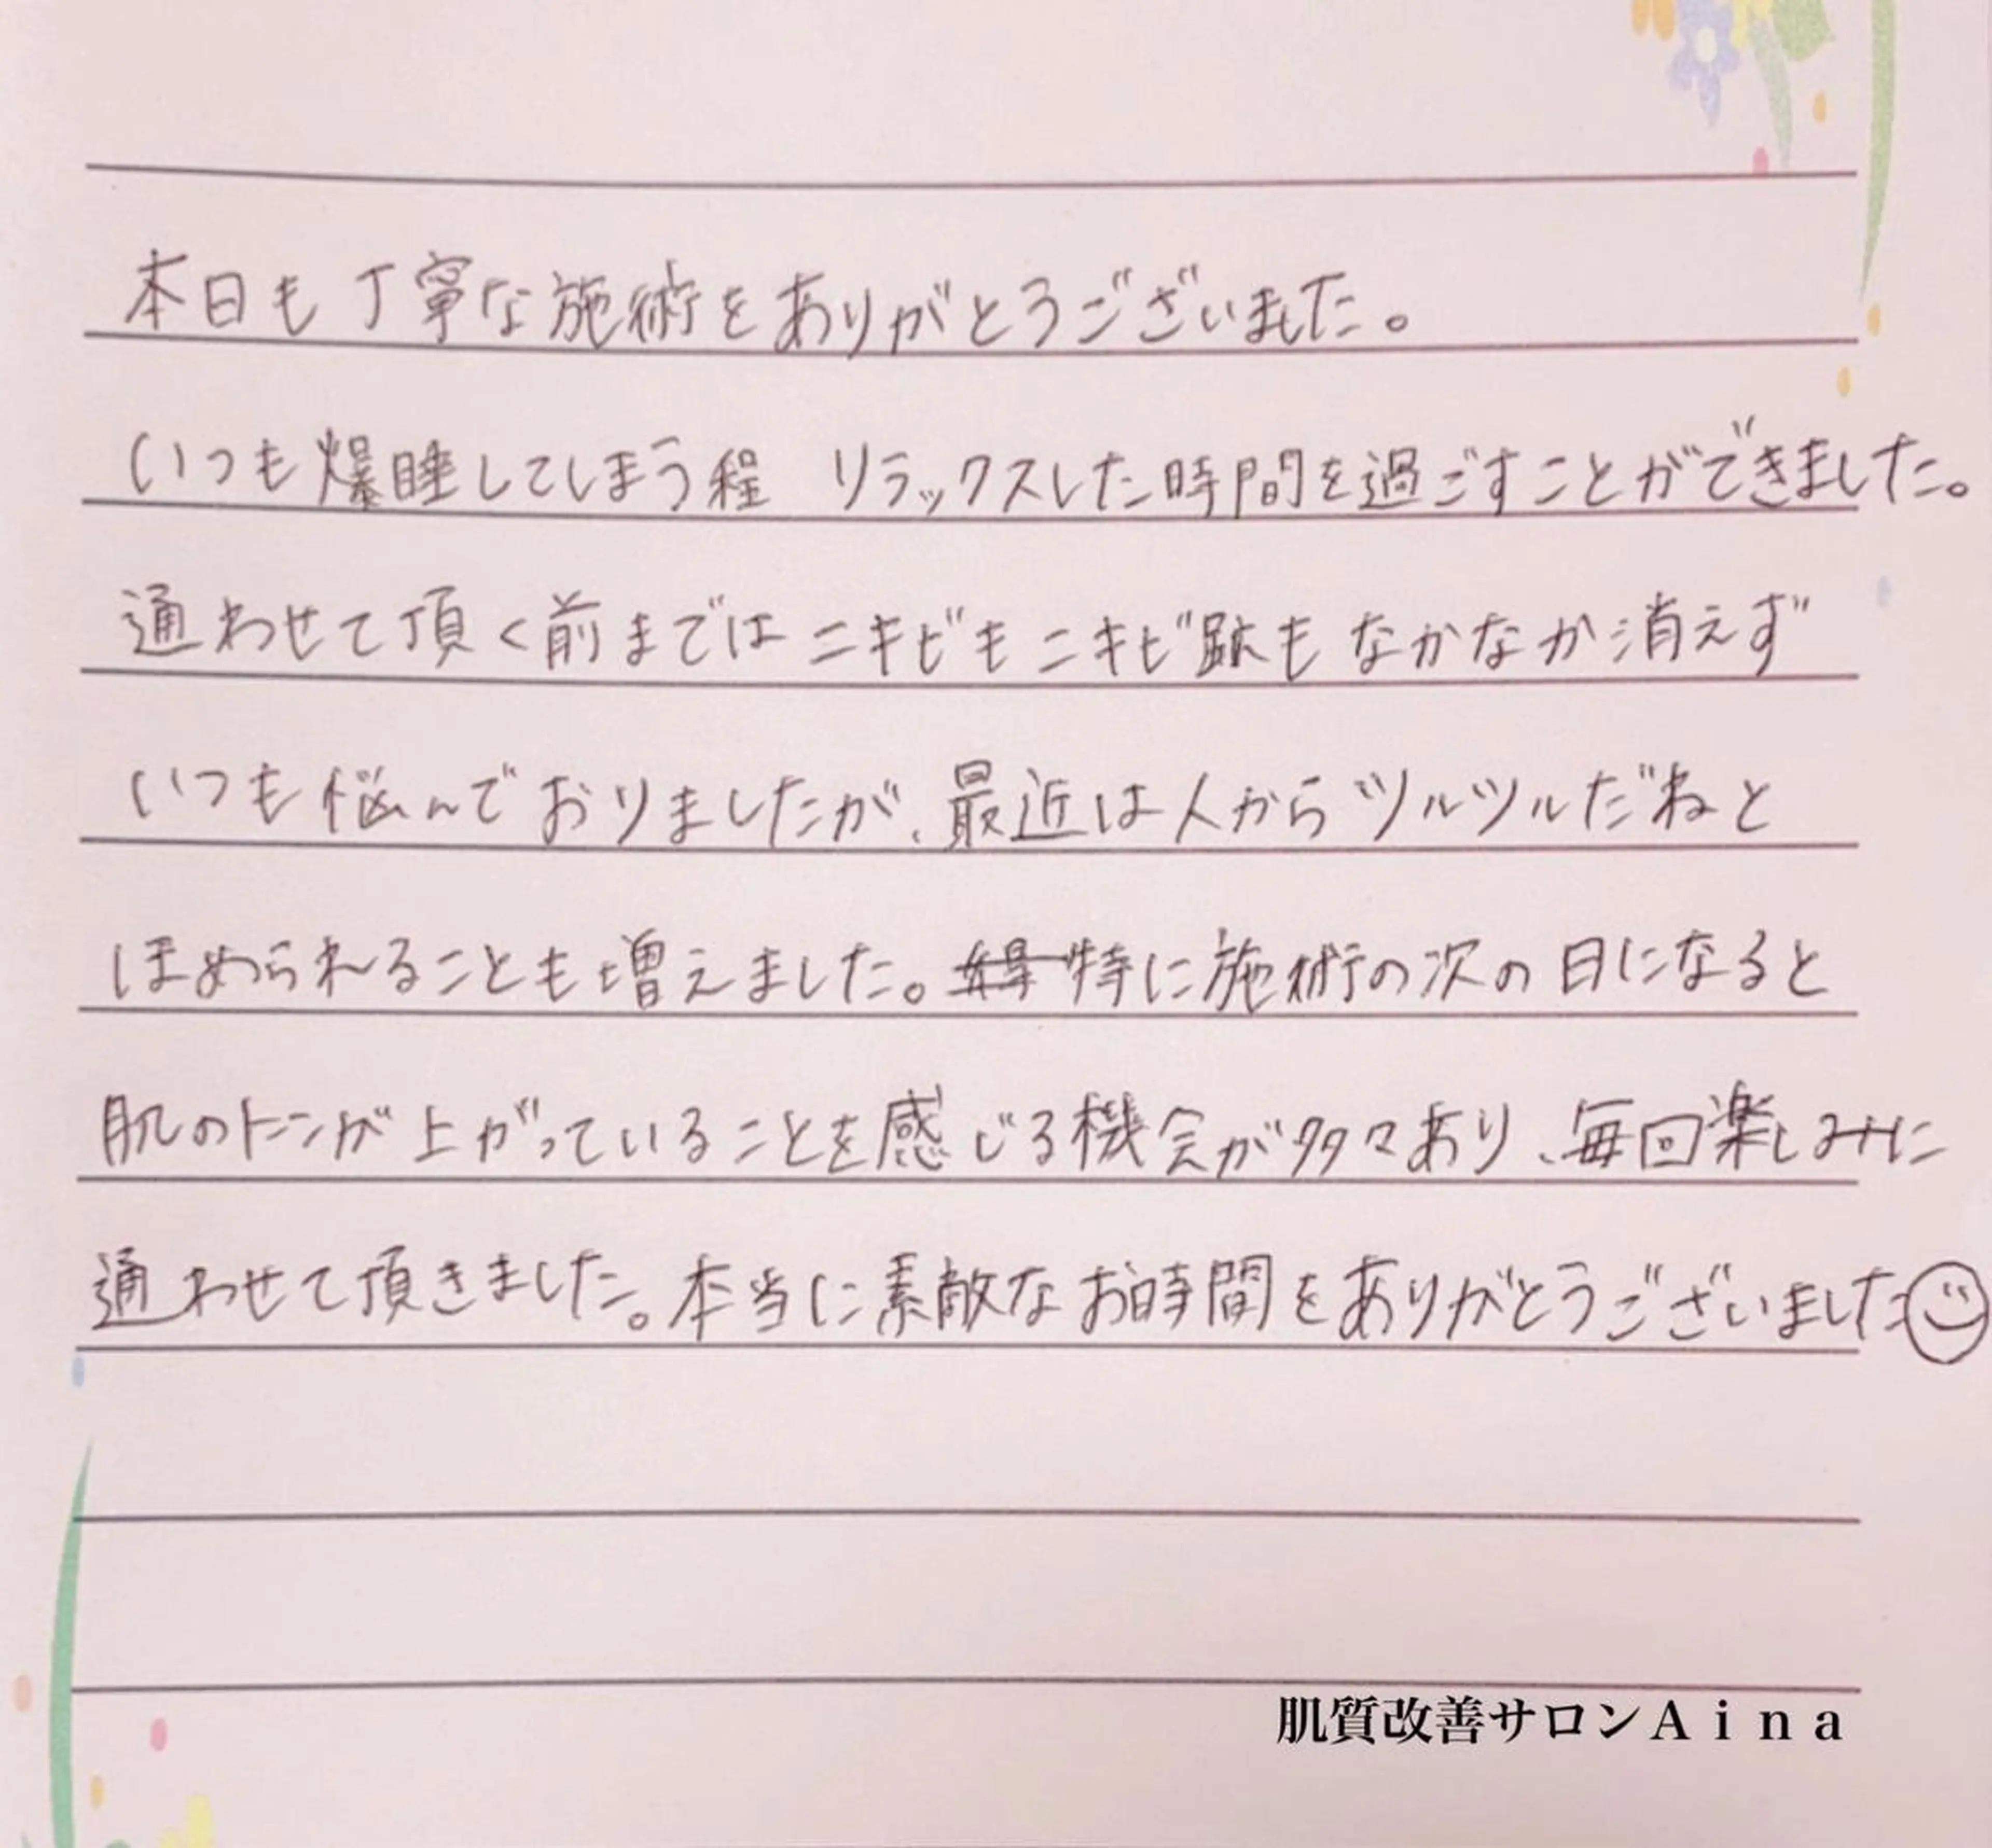 本日も丁寧な施術をありがとうございました。
いつも爆睡してしまう程 リラックスした時間を過ごすことができました。
通わせて頂く前まではニキビもニキビ跡もなかなか消えず
いつも悩んでおりましたが、最近は人からツルツルだねと
ほめられることも増えました。特に施術の次の日になると
肌のトーンが上がっていることを感じる機会が多々あり、毎回楽しみに
通わせて頂きました。本当に素敵なお時間をありがとうございました
肌質改善サロンAina